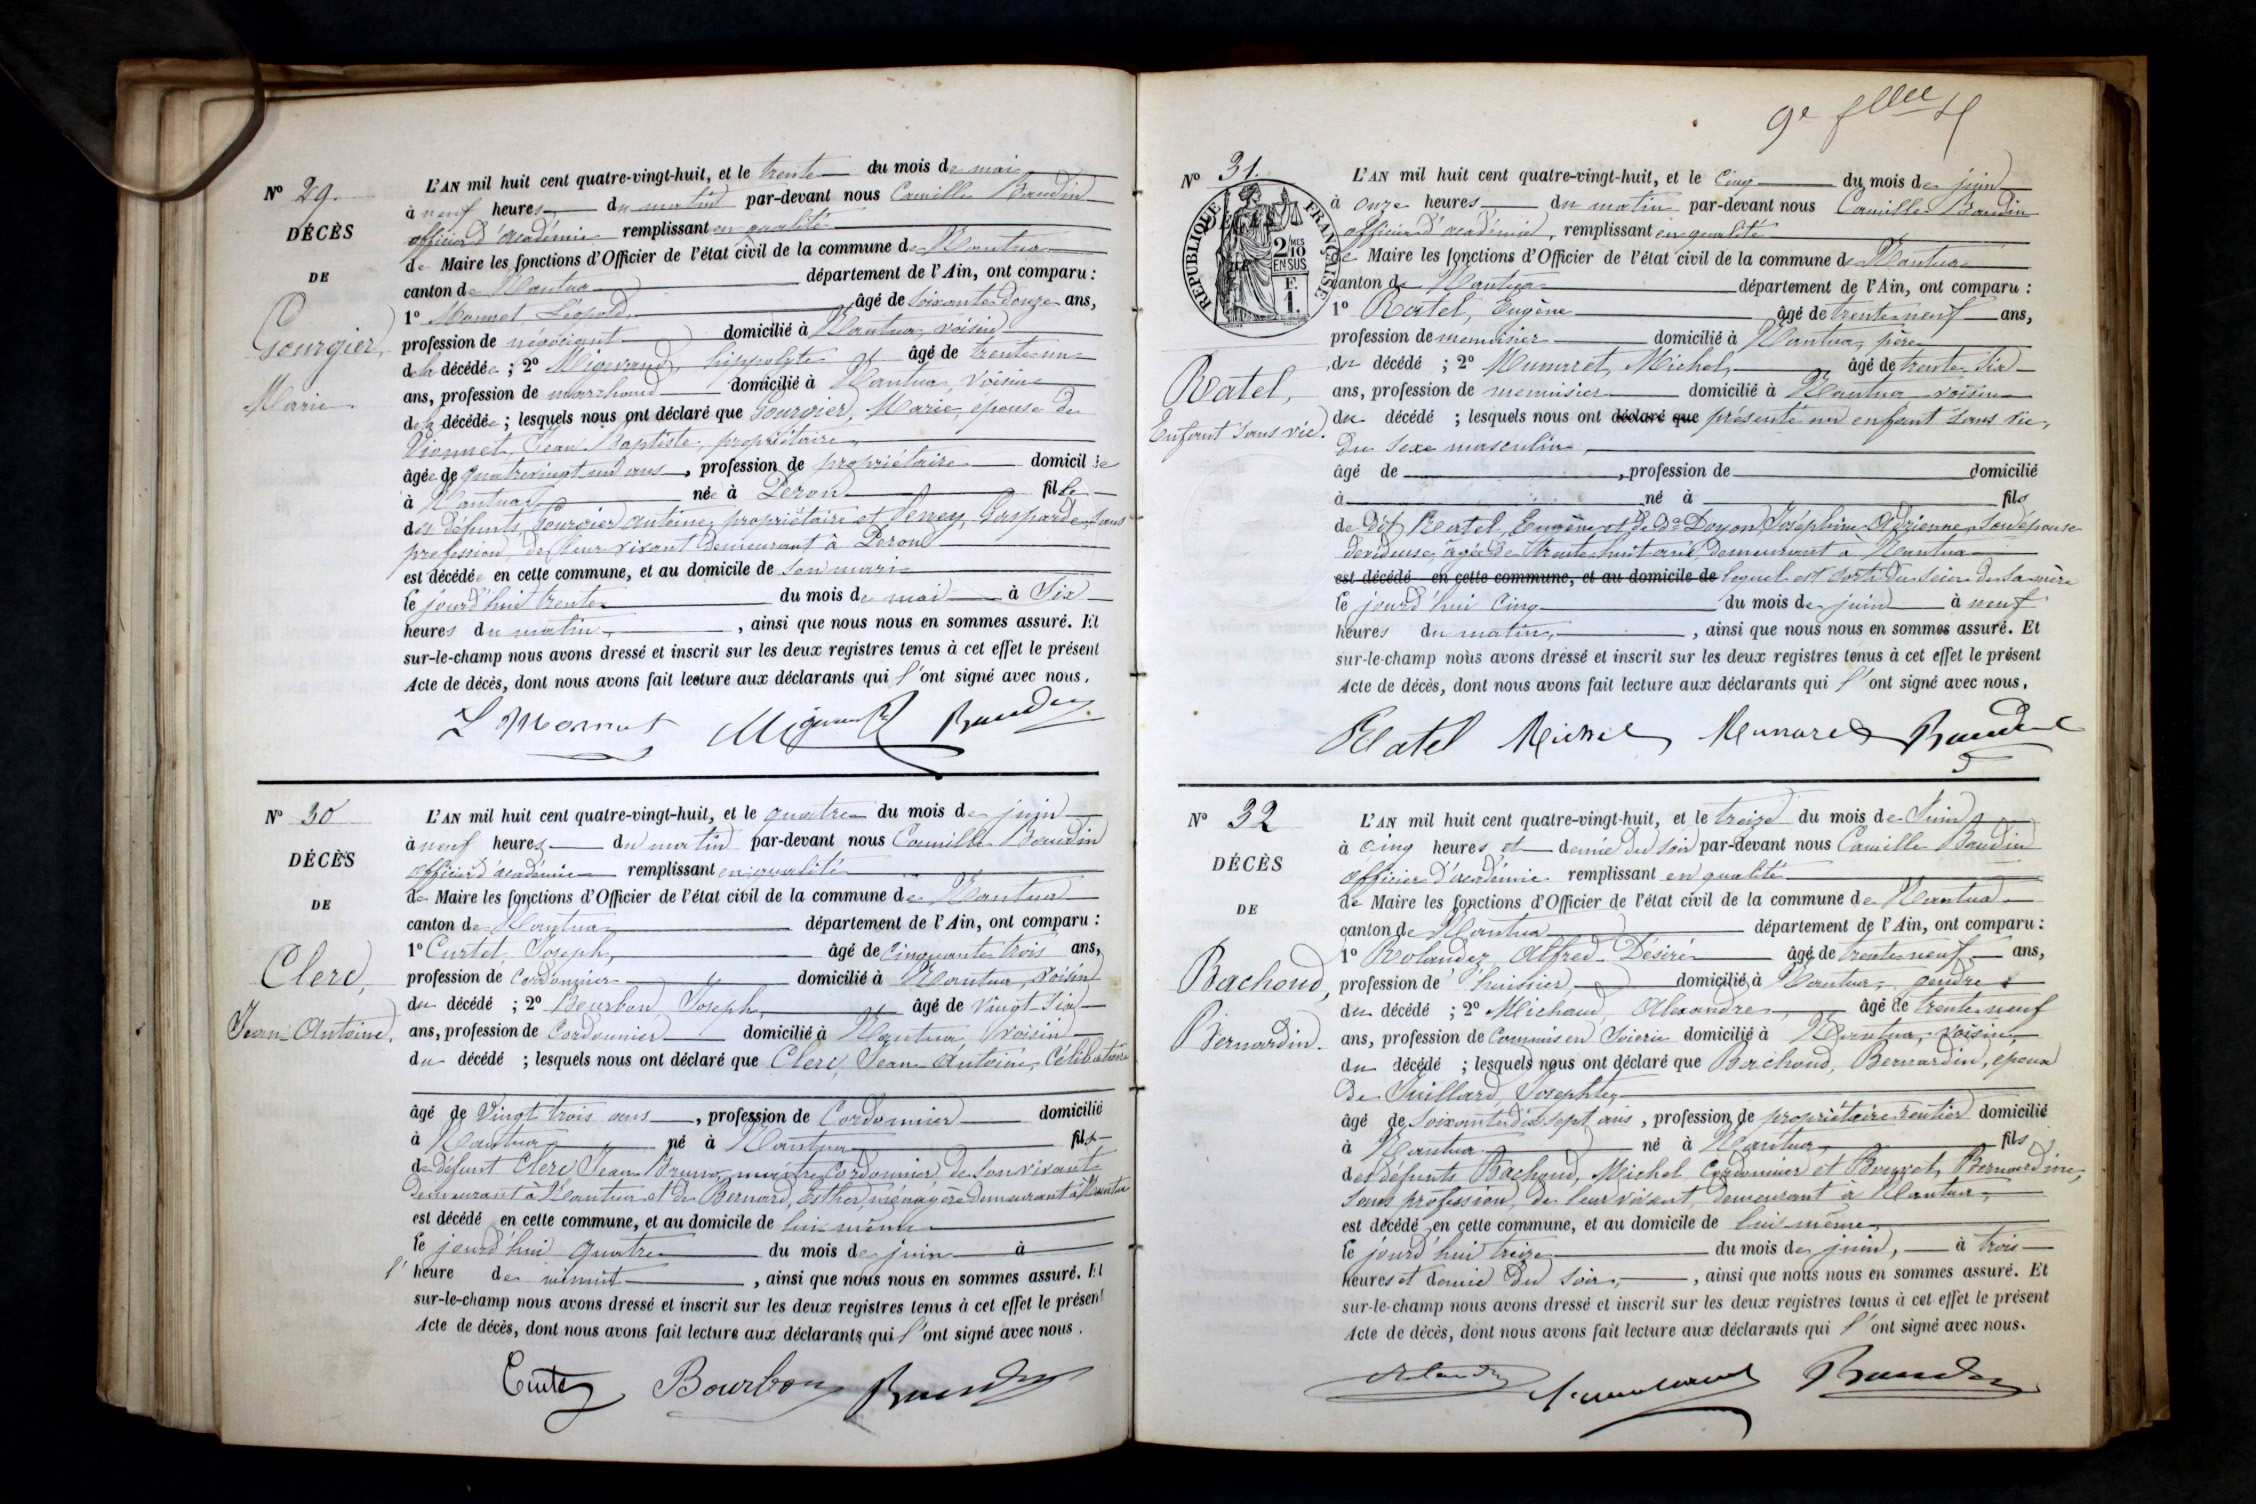 Nº 29.
DÉCÈS
DE
Gourgier,
Marie.
L'AN mil huit cent quatre-vingt-huit, et le trente du mois de mai
à neuf heures du matin par-devant nous Camille Baudin
officier d'académie remplissant en qualité
de Maire les fonctions d'Officier de l'état civil de la commune de Nantua
canton de Nantua département de l'Ain, ont comparu :
1º Monnet Léopold âgé de soixante douze ans,
profession de négociant domicilié à Nantua, voisin
de la décédée ; 2º hippolyte âgé de trente un
ans, profession de marchand domicilié à Nantua, voisin
de la décédée ; lesquels nous ont déclaré que Gourgier, Marie, épouse de
Vionnet, Jean Baptiste, propriétaire,
âgée de quatrevingt un ans, profession de propriétaire domiciliée
à Nantua née à Peron fille
des défunts Gourgier Antoine, propriétaire et Gasparde, sans
profession, de leur vivant demeurant à Peron
est décédée en cette commune, et au domicile de son mari
le jourd'hui trente du mois de mai à Six
heures du matin, ainsi que nous nous en sommes assuré. Et
sur-le-champ nous avons dressé et inscrit sur les deux registres tenus à cet effet le présent
Acte de décès, dont nous avons fait lecture aux déclarants qui l'ont signé avec nous.
L Monnet Baudin
Nº 30
DÉCÈS
DE
Clerc,
Jean-Antoine.
L'AN mil huit cent quatre-vingt-huit, et le quatre du mois de juin
à neuf heures du matin par-devant nous Camille Baudin
officier d'académie remplissant en qualité
de Maire les fonctions d'Officier de l'état civil de la commune de Nantua
canton de Nantua département de l'Ain, ont comparu :
1º Curtet, Joseph, âgé de cinquante trois ans,
profession de Cordonnier domicilié à Nantua, voisin
du décédé ; 2º Bourbon, Joseph, âgé de vingt six
ans, profession de Cordonnier domicilié à Nantua, voisin
du décédé ; lesquels nous ont déclaré que Clerc, Jean Antoine, Célibataire
âgé de vingt trois ans, profession de Cordonnier domicilié
à Nantua né à Nantua fils
de défunt Clerc Jean Bruno, maître Cordonnier, de son vivant
demeurant à Nantua et de Bernard, Esther, ménagère demeurant à Nantua
est décédé en cette commune, et au domicile de lui même
le jourd'hui quatre du mois de juin à
l'heure de minuit, ainsi que nous nous en sommes assuré. Et
sur-le-champ nous avons dressé et inscrit sur les deux registres tenus à cet effet le présent
Acte de décès, dont nous avons fait lecture aux déclarants qui l'ont signé avec nous.
Bourbon Baudin
9e
Nº 31.
RÉPUBLIQUE FRANÇAISE
2/10 MES
EN SUS
F.
1.
Ratel,
Enfant sans vie.
L'AN mil huit cent quatre-vingt-huit, et le cinq du mois de juin
à onze heures du matin par-devant nous Camille Baudin
officier d'académie, remplissant en qualité
de Maire les fonctions d'Officier de l'état civil de la commune de Nantua
canton de Nantua département de l'Ain, ont comparu :
1º Ratel, Eugène âgé de trente neuf ans,
profession de menuisier domicilié à Nantua, père
du décédé ; 2º Munaret, Michel, âgé de trente six
ans, profession de menuisier domicilié à Nantua voisin
du décédé ; lesquels nous ont déclaré que présenté un enfant sans vie,
du sexe masculin,
âgé de , profession de domicilié
à né à fils
de dit Ratel, Eugène et de De Doyon, Joséphine Adrienne, son épouse
devideuse, âgée de trente huit ans demeurant à Nantua
est décédé en cette commune, et au domicile de lequel est sorti du sein de sa mère
le jourd'hui cinq du mois de juin à neuf
heures du matin, ainsi que nous nous en sommes assuré. Et
sur-le-champ nous avons dressé et inscrit sur les deux registres tenus à cet effet le présent
Acte de décès, dont nous avons fait lecture aux déclarants qui l'ont signé avec nous.
Ratel Michel Munaret Baudin
Nº 32
DÉCÈS
DE
Bachoud,
Bernardin.
L'AN mil huit cent quatre-vingt-huit, et le treize du mois de Juin
à cinq heures et demie du soir par-devant nous Camille Baudin
officier d'académie remplissant en qualité
de Maire les fonctions d'Officier de l'état civil de la commune de Nantua
canton de Nantua département de l'Ain, ont comparu :
1º Rolandez, Alfred Désiré âgé de trente neuf ans,
profession de huissier, domicilié à Nantua, gendre
du décédé ; 2º Michaud, Alexandre, âgé de trente neuf
ans, profession de Commis en Soierie domicilié à Nantua, voisin,
du décédé ; lesquels nous ont déclaré que Bachoud, Bernardin, époux
de Juillard, Josephte,
âgé de soixante dix sept ans, profession de propriétaire rentier domicilié
à Nantua né à Nantua, fils
des défunts Bachoud, Michel Cordonnier et Bouvet, Bernardine,
sans profession, de leur vivant, demeurant à Nantua,
est décédé en cette commune, et au domicile de lui même
le jourd'hui treize du mois de juin, à trois
heures et demie du soir, ainsi que nous nous en sommes assuré. Et
sur-le-champ nous avons dressé et inscrit sur les deux registres tenus à cet effet le présent
Acte de décès, dont nous avons fait lecture aux déclarants qui l'ont signé avec nous.
Baudin